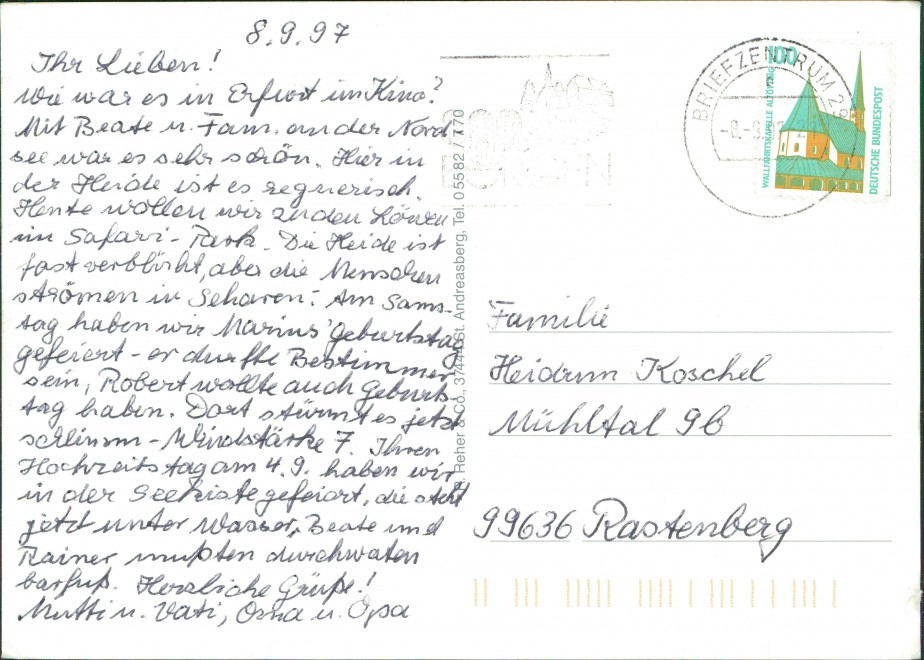 8.9.97
Ihr Lieben!
Wie war es in Erfurt im Kino?
Mit Beate u. Fam. an der Nord
see war es sehr schön. Hier in
der Heide ist es regnerisch.
Heute wollen wir zu den Löwen
im Safari-Park. Die Heide ist
fast verblüht, aber die Menschen
strömen in Scharen. Am Sams-
tag haben wir Marius' Geburtstag
gefeiert - er durfte Bestimmer
sein, Robert wollte auch Geburts-
tag haben. Dort stürmt es jetzt
schlimm - Windstärke 7. Ihren
Hochzeitstag am 4.9. haben wir
in der Seekiste gefeiert, die steht
jetzt unter Wasser, Beate und
Rainer mußten durchwaten
barfuß. Herzliche Grüße!
Mutti u. Vati, Oma u. Opa
Reher & Co., 37444 St. Andreasberg, Tel. 05582 / 770
BRIEFZENTRUM 29
100
WALLFAHRTSKAPELLE ALTÖTTING
DEUTSCHE BUNDESPOST
Familie
Heidrun Koschel
Mühltal 9b
99636 Rastenberg